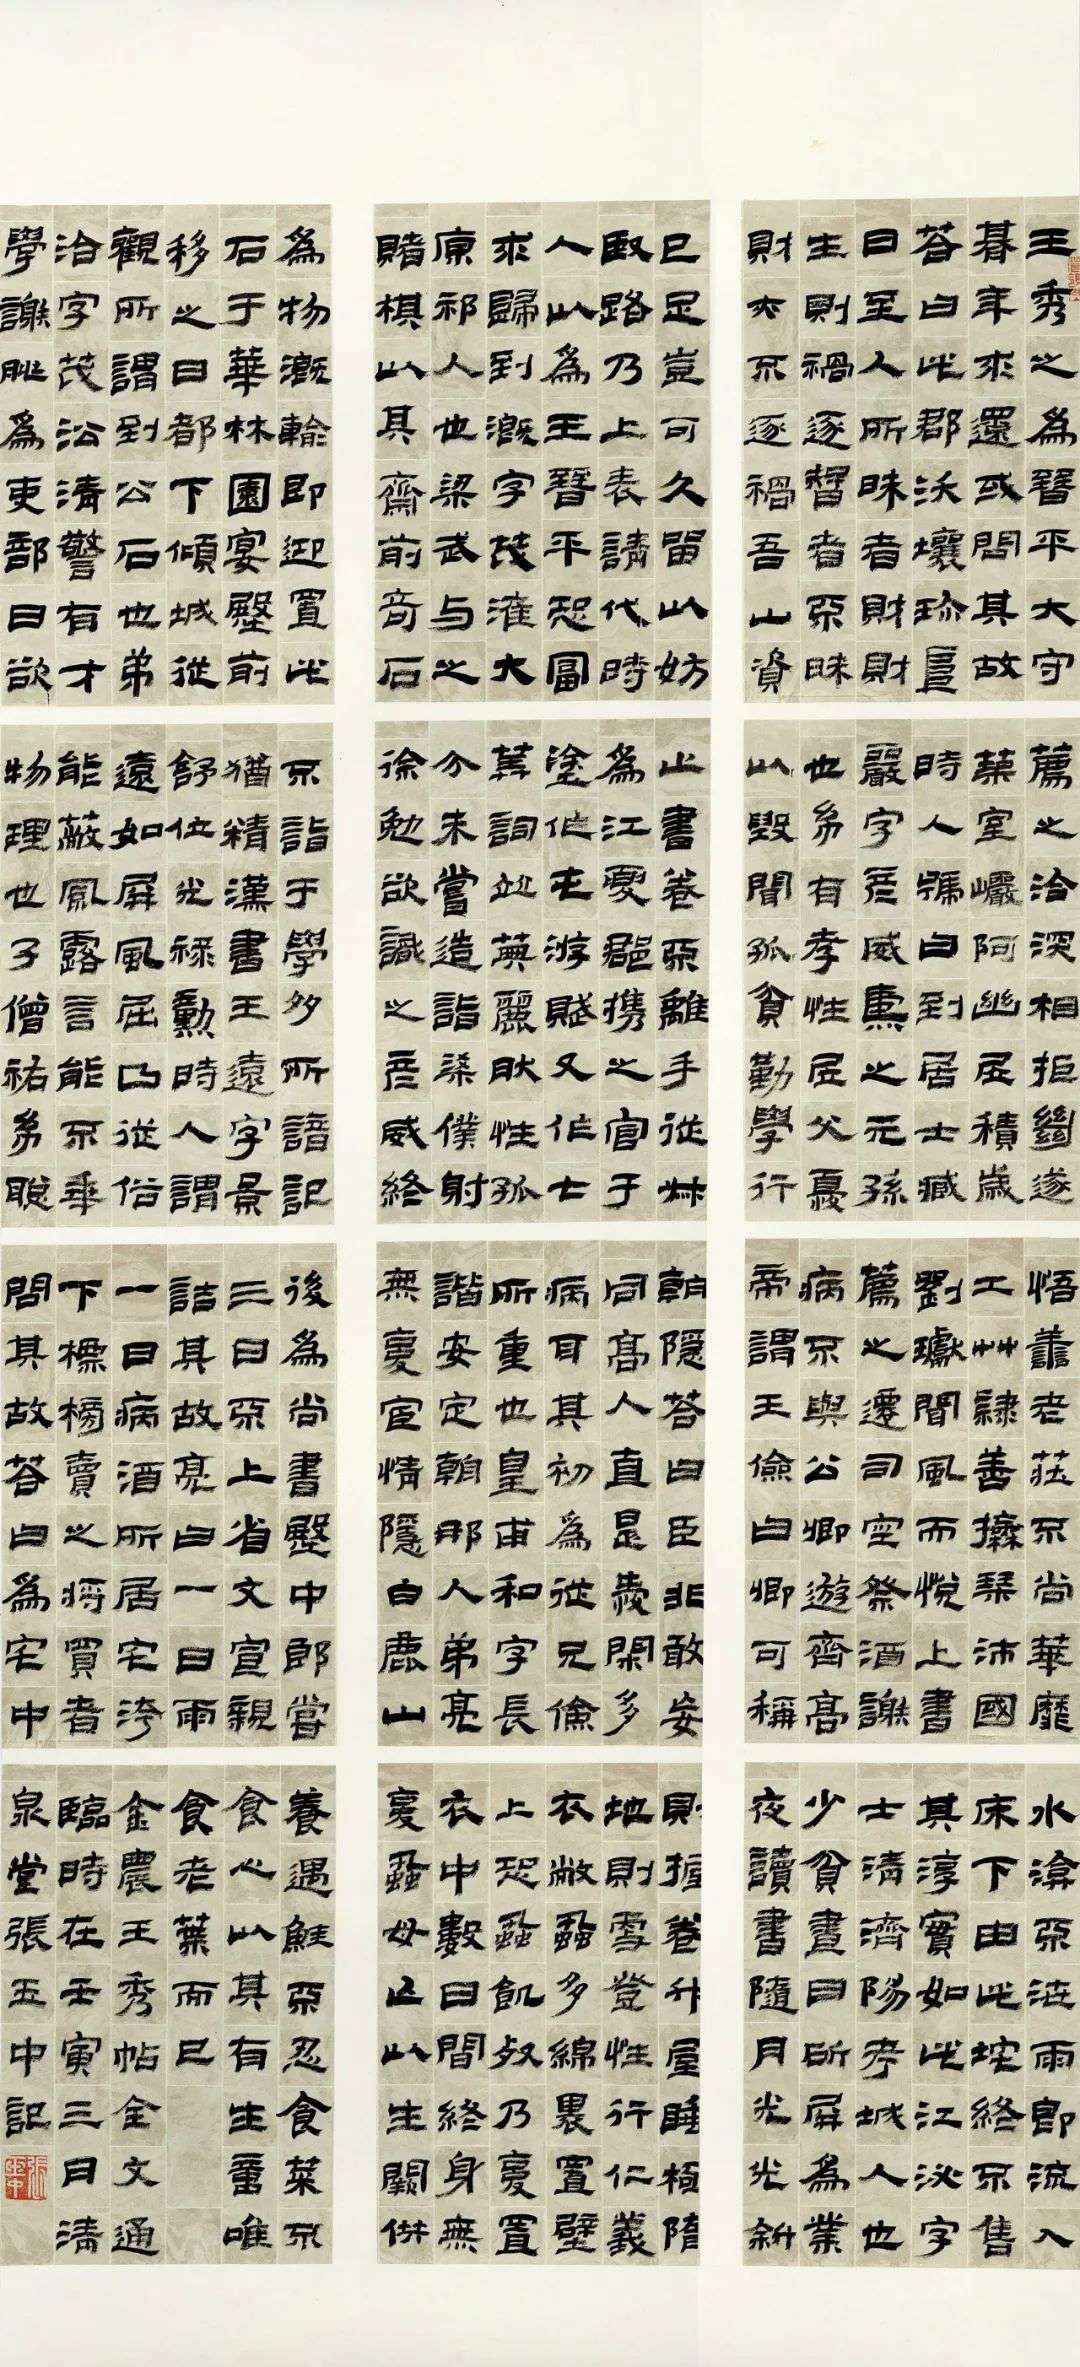 王秀之為晉平大守
朞年求還或問其故
答曰此郡沃壤珍阜
日至人所昧者財財
生則禍逐智者不昧
財亦不逐禍吾山資
已足豈可久留以妨
賢路乃上表請代時
人以為王晉平恐富
求歸到溉字茂灌大
原祁人也梁武与之
賭棋以其齋前奇石
為物溉輸即迎置此
石于華林園宴殿前
移之日都下傾城從
觀所謂到公石也弟
洽字茂㳂清警有才
學謝朓為吏部曰欲
薦之洽深相拒絕遂
築室巖阿幽居積歲
時人號曰到居士臧
嚴字彥威燾之元孫
也幼有孝性居父憂
以毀聞孤貧勤學行
止書卷不離手從叔
為江夏郡携之官于
塗作屯游賦又作七
筭詞竝英麗耿性孤
介未嘗造詣梁僕射
徐勉欲識之彥威終
不詣于學多所諳記
猶精漢書王遠字景
舒位光祿勳時人謂
遠如屏風屈曲從俗
能蔽風露言能不乖
物理也子僧祐幼聰
悟善老莊不尚華靡
工艸隸善操琴沛國
劉瓛聞風而悅上書
薦之遷司空祭酒謝
病不與公卿遊齊高
帝謂王儉曰卿可稱
朝隱答曰臣非敢妄
同高人直是愛閑多
病耳其初為從兄儉
所重也皇甫和字長
諧安定朝那人弟亮
無夏宦情隱白鹿山
後為尚書殿中郎嘗
三日不上省文宣親
詰其故亮曰一日雨
一日病酒所居宅洿
下標榜賣之將買者
問其故答曰為宅中
水淹不洩雨即流入
床下由此宅終不售
其淳實如此江泌字
士清濟陽考城人也
少貧晝日斫屏為業
夜讀書隨月光光斜
則握卷升屋睡極墮
地則雪登性行仁義
衣敝蝨多綿裹置壁
上恐蝨飢死乃复置
衣中數日間終身無
复蝨母亡以生闕供
養遇鮭不忍食菜不
食心以其有生意唯
食老葉而已
金農王秀帖全文通
臨時在壬寅三月清
泉堂張玉中記